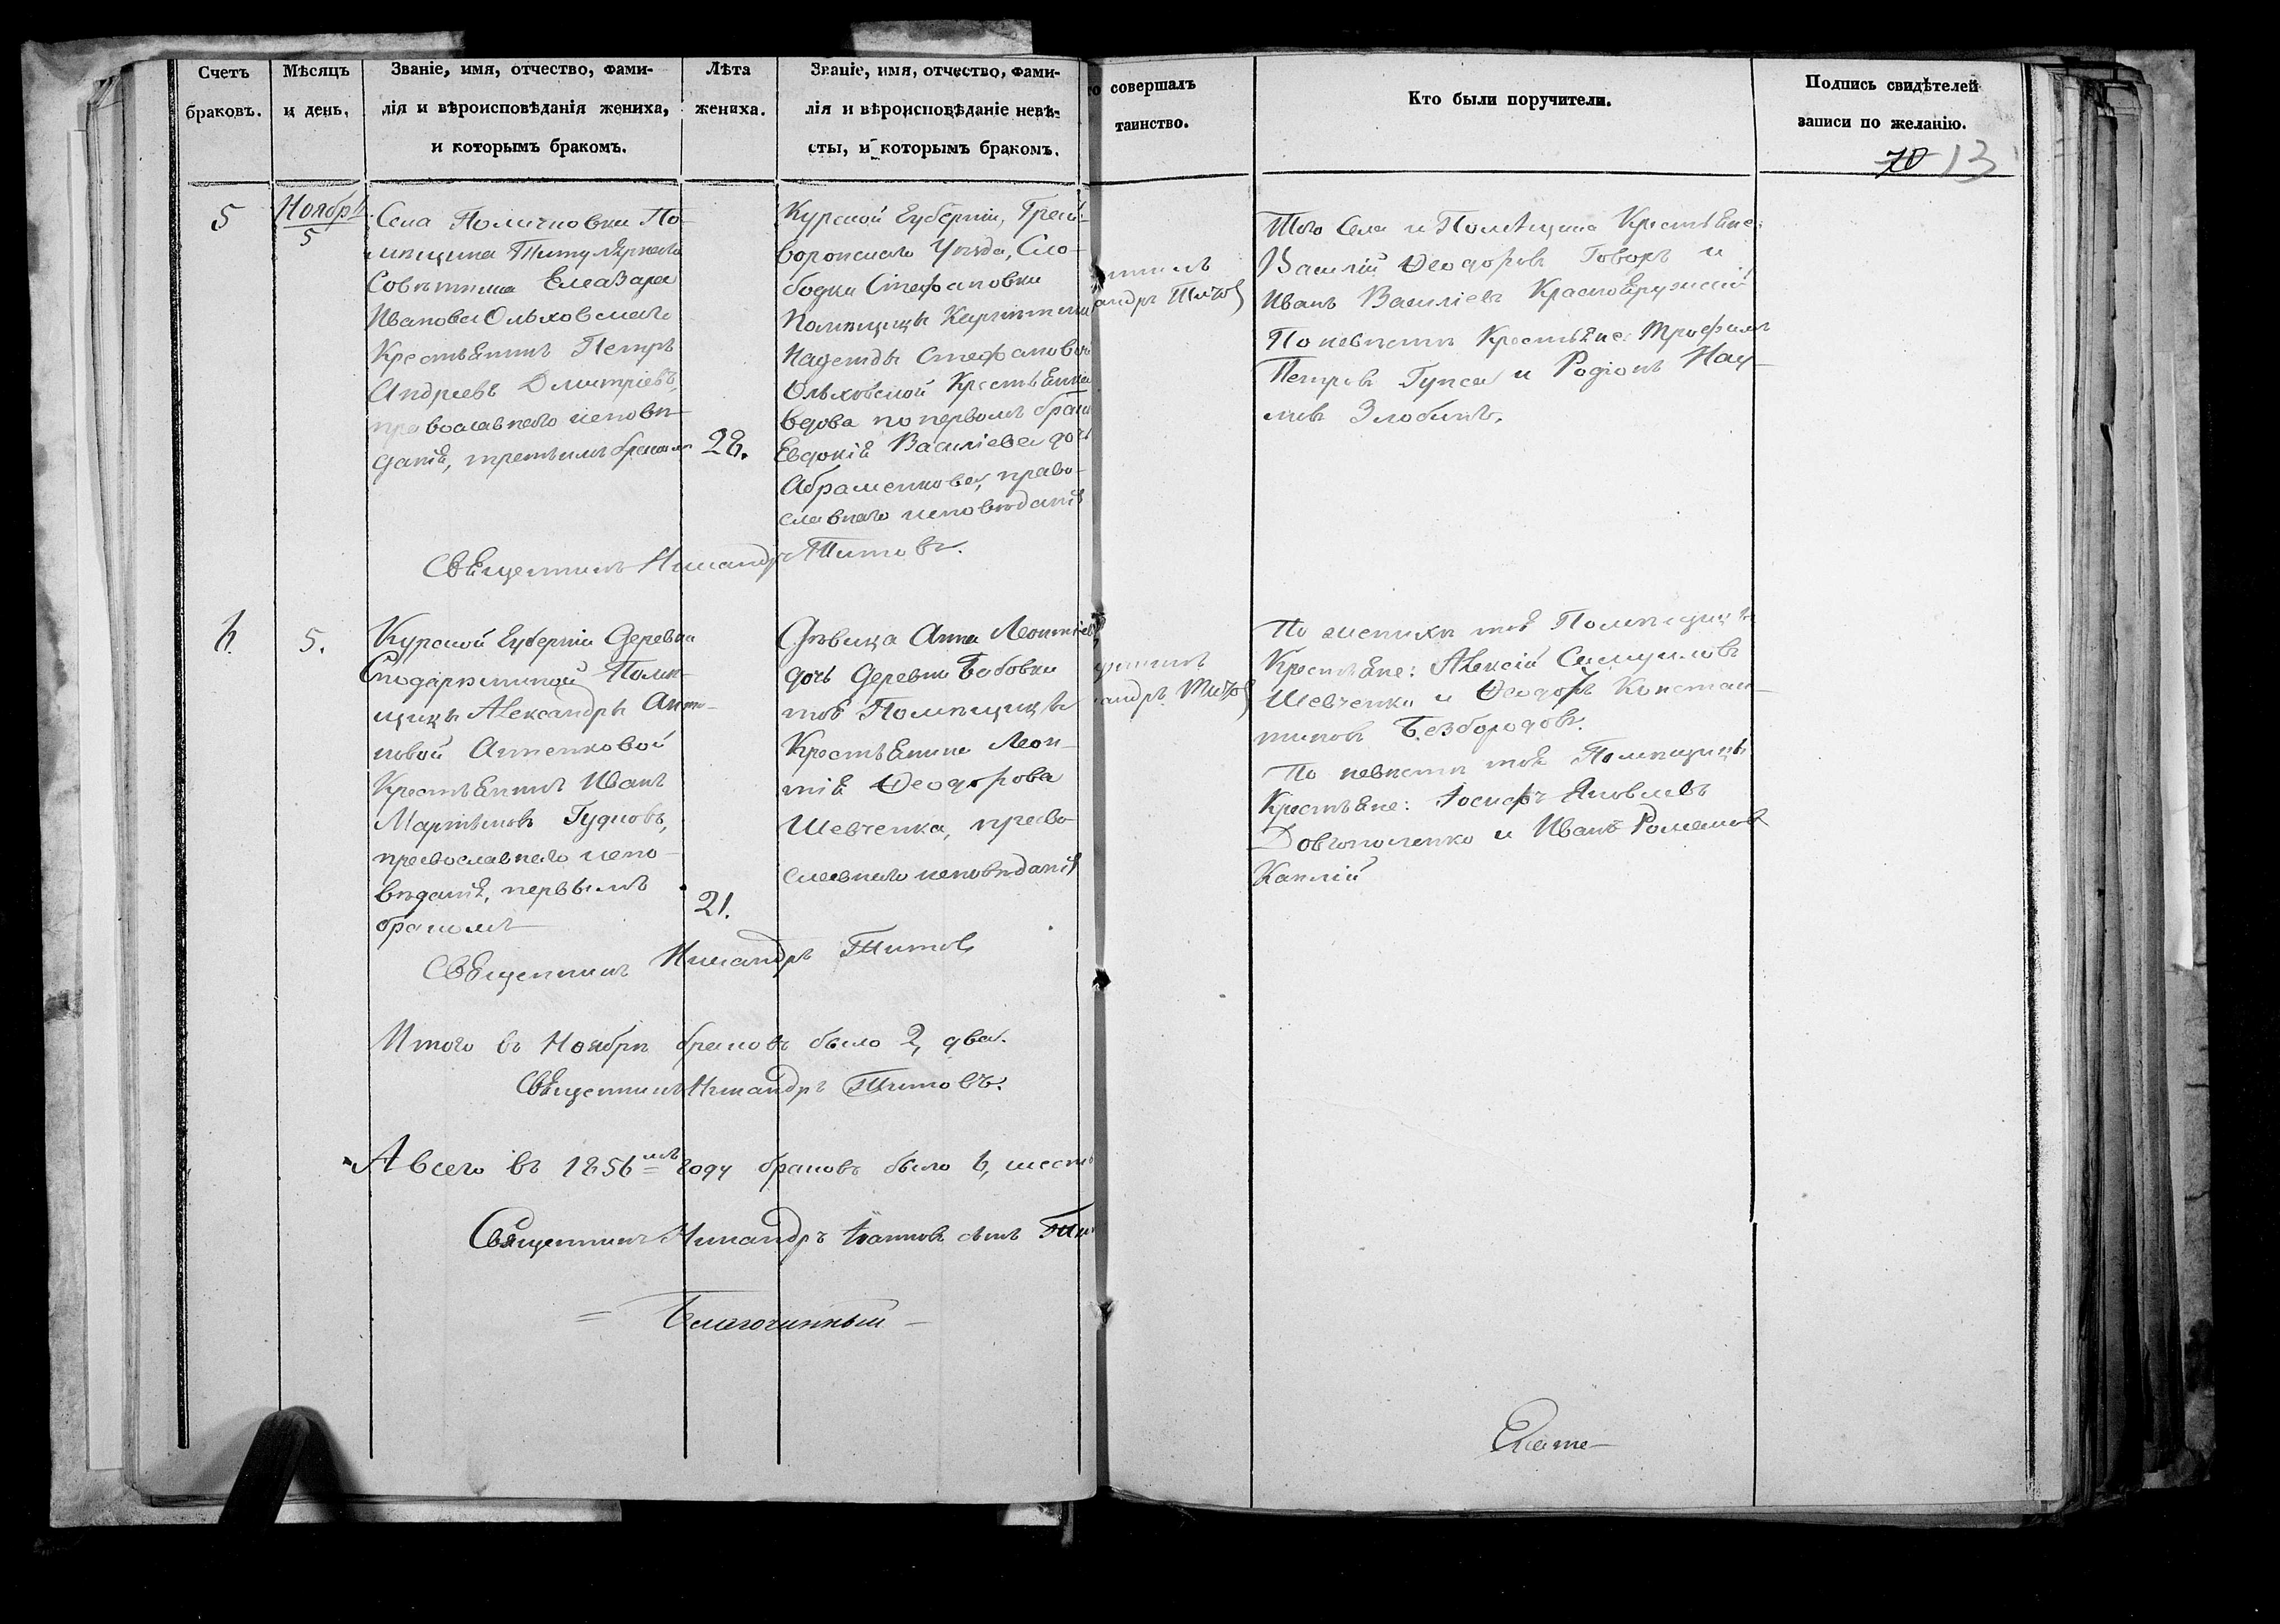 Счетъ
браковъ.
Мѣсяцъ
и день.
Званіе, имя, отчество, фами-
лія и вѣроисповѣданія жениха,
и которымъ бракомъ.
Лѣта
жениха.
Званіе, имя, отчество, фами-
лія и вѣроисповѣданіе невѣ-
сты, и которымъ бракомъ.
совершалъ
таинство.
Кто были поручители.
Подпись свидѣтелей
записи по желанію.
13
5
Ноябрь
5
Села Поличковки По-
мѣщика Титулярнаго
Совѣтника Елеазара
Иванова Ольховскаго
Крестьянинъ Петръ
Андреевъ Дмитріевъ,
православнаго исповѣ-
данія, третьимъ бракомъ
28.
Курской Губерніи, Грай-
воронскаго Уѣзда, Сло-
бодки Стефановки
Помѣщицы
Надежды Стефановой
Ольховской Крестьянка
вдова по первомъ бракѣ
Евдокія Василіева дочь
Абраменкова, право-
славнаго исповѣданія
андръ Титов
Того Села и Помѣщика Крестьяне:
Василій Ѳеодоровъ Говоръ и
Иванъ Василіевъ Краснояружскій
По невѣстѣ Крестьяне: Трофимъ
Петровъ Гупса и Родіонъ Нау-
мовъ Злобинъ.
Священникъ Никандръ Титовъ.
6.
5.
Курской Губерніи Деревни
Помѣ-
щицы Александры Анто-
новой Анненковой
Крестьянинъ Иванъ
Мартыновъ Гудковъ,
православнаго испо-
вѣданія, первымъ
бракомъ
21.
Дѣвица Анна Леонтіева
дочь Деревни Бабовки
той Помѣщицы
Крестьянина Леон-
тія Ѳеодорова
Шевченка, право-
славнаго исповѣданія
андръ Титов
По жениху той Помѣщицы
Крестьяне: Алексій Самуиловъ
Шевченко и Ѳеодоръ Констан-
тиновъ Безбородовъ.
По невѣстѣ той Помѣщицы
Крестьяне: Іосифъ Яковлевъ
Довгополенко и Иванъ Романовъ
Каплій
Священникъ Никандръ Титовъ
Итого въ Ноябрѣ браковъ было 2, два.
Священникъ Никандръ Титовъ.
А всего въ 1856мъ году браковъ было 6, шесть
Священникъ Никандръ Іоанновъ сынъ Тит
Благочинный